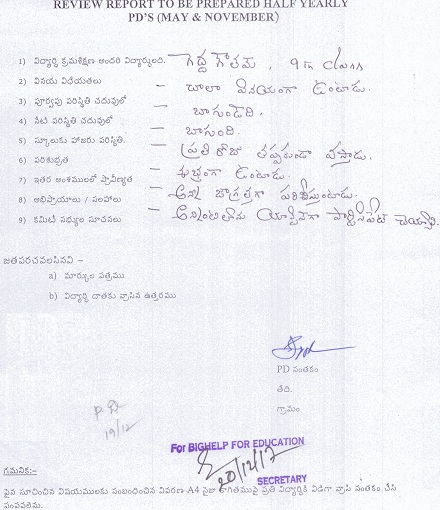 REVIEW REPORT TO BE PREPARED HALF YEARLY
PD'S (MAY & NOVEMBER)
1) విద్యార్థి క్రమశిక్షణ అందరి విద్యార్థులది. గెద్ద గౌతమ్, 9th class
2) వినయ విధేయతలు – చాలా వినయంగా ఉంటాడు.
3) పూర్వపు పరిస్థితి చదువులో – బాగుండేది.
4) నేటి పరిస్థితి చదువులో – బాగుంది.
5) స్కూలుకు హాజరు పరిస్థితి. – ప్రతి రోజు తప్పకుండా వస్తాడు.
6) పరిశుభ్రత – శుభ్రంగా ఉంటాడు.
7) ఇతర అంశములలో ప్రావీణ్యత – అన్ని జాగ్రత్తగా పరిశీలిస్తుంటాడు.
8) అభిప్రాయాలు / ఫలహాలు – అన్నింటిలోను యాక్టివ్‌గా పార్టిసిపేట్ చెయ్యాలి.
9) కమిటీ సభ్యుల సూచనలు
జతపరచవలసినవి –
a) మార్కుల పత్రము
b) విద్యార్థి దాతకు వ్రాసిన ఉత్తరము
PD సంతకం
తేది.
గ్రామం
P.D
19/12
For BIGHELP FOR EDUCATION
20/12/17
SECRETARY
గమనిక:–
పైన సూచించిన విషయములకు సంబంధించిన వివరణ A4 సైజు కాగితముపై ప్రతి విద్యార్థికి విడిగా వ్రాసి సంతకం చేసి
పంపవలెను.